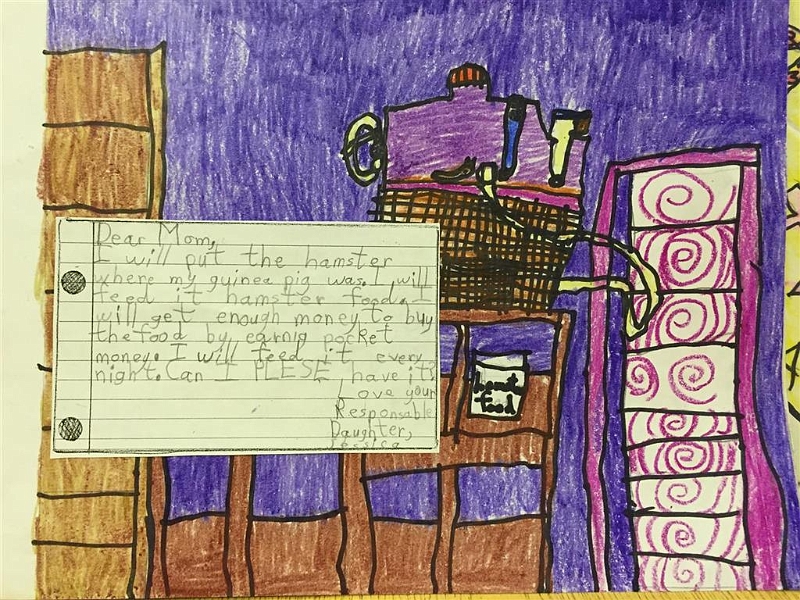 Dear Mom,
I will put the hamster
where my guinea pig was. I will
feed it hamster food. I
will get enough money to buy
the food by earnig pocket
money. I will feed it every
night. Can I PLESE have it?
Love your
Responsable
Daughter,
Jessica
food